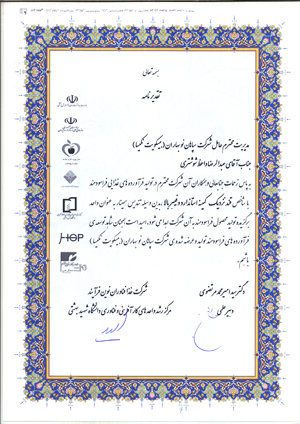 بسمه تعالی
تقدیرنامه
مدیریت محترم عامل شرکت سالمان نوبهاران (بیسکویت نگیما)
جناب آقای عبدالرضا واعظ شوشتری
به پاس زحمات جنابعالی و همکاران آن شرکت محترم در تولید فرآورده های غذایی فراسودمند
با شاخص قند نزدیک کمینه استاندارد و فیبر بالا، بدین وسیله تندیس سمینار به عنوان واحد
برگزیده تولید محصول فراسودمند به آن شرکت اهدا می شود. امید است همچنان شاهد توسعه ی
فرآورده های فراسودمند تولید و عرضه شده ی شرکت سالمان نوبهاران (بیسکویت نگیما)
باشیم.
دکتر سید امیرمحمد مرتضوی
دبیر علمی
شرکت غذا فناوران نوین فرآیند
مرکز رشد واحدهای کارآفرینی و فناوری دانشگاه شهید بهشتی
HOP